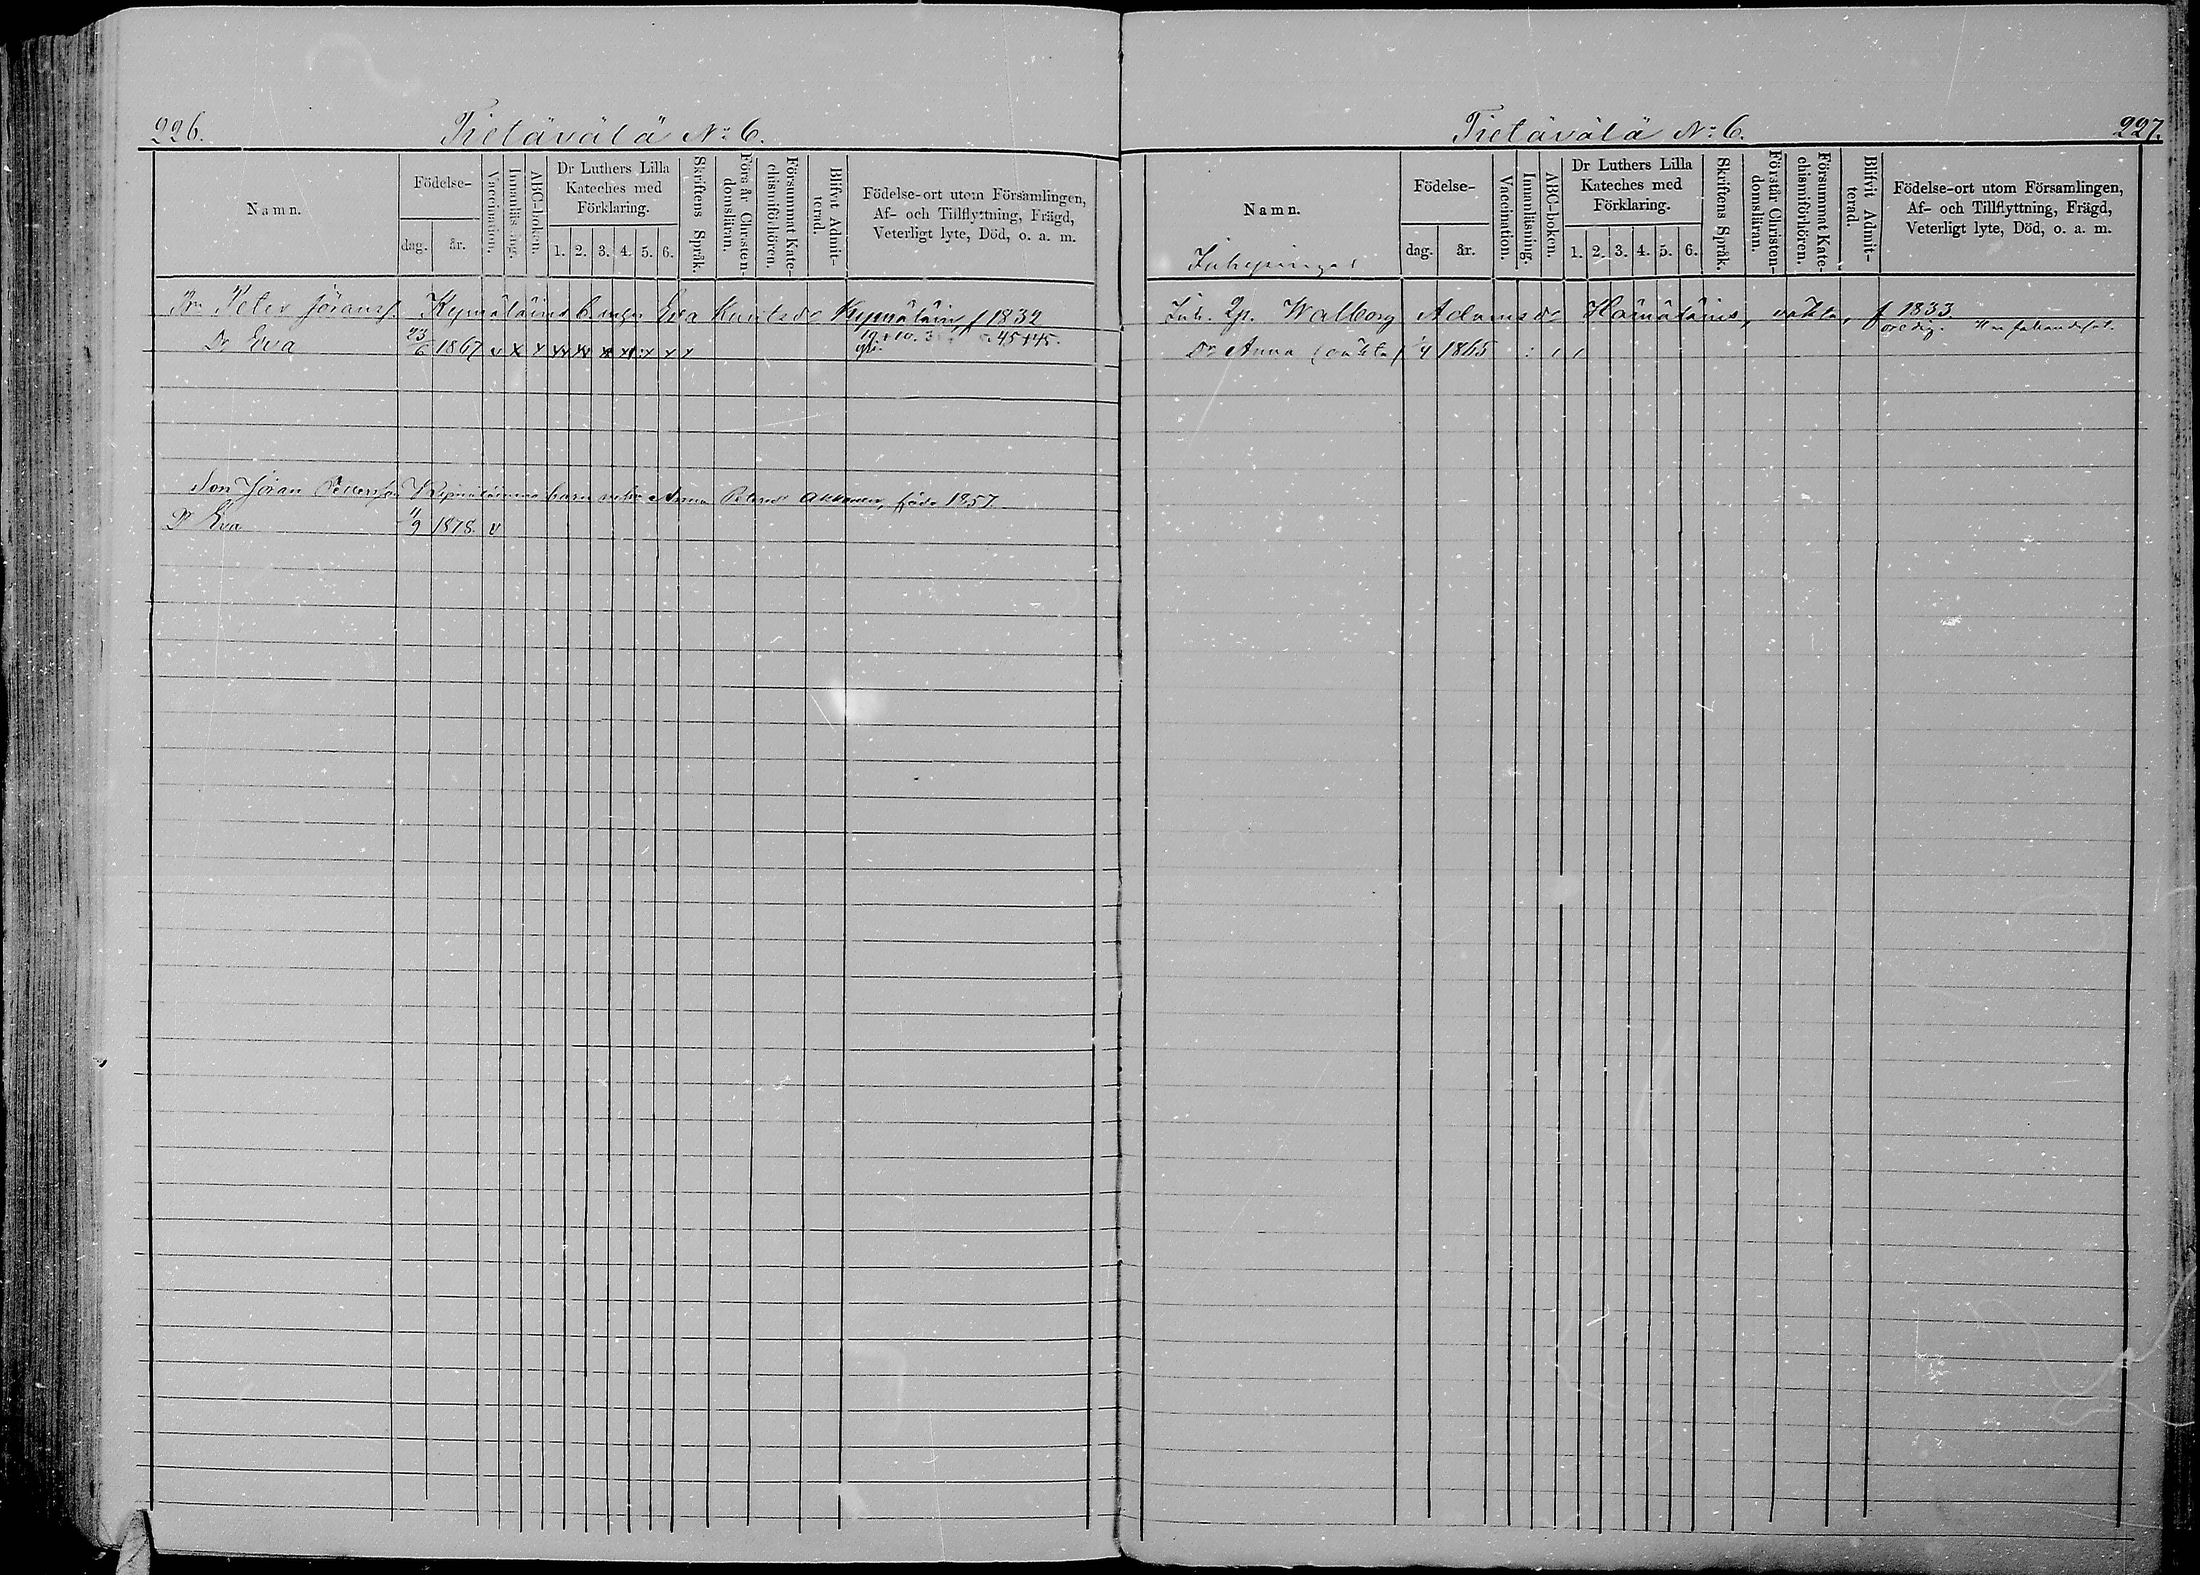 226. Tietävälä No: 6.
Namn.
Födelse-
dag. år.
Vaccination.
Innanläsning.
ABC-boken.
Dr Luthers Lilla Kateches med Förklaring.
1. 2. 3. 4. 5. 6.
Skriftens Språk.
Förstår Christendomsläran.
Försummat Katechismiförhören.
Blifvit Admitterad.
Födelse-ort utom Församlingen,
Af- och Tillflyttning, Frägd,
Veterligt lyte, Död, o. a. m.
Peter Jöranss. Kymäläine Eva Kymäläin f 1832
Dr Eva 23/6 1867 v x x x x x x x x x x
Son Jöran Petersson barn Anna Petersdr född 1857
Dr Eva 11/9 1878. v
Tietävälä No: 6. 227.
Namn.
Födelse-
dag. år.
Vaccination.
Innanläsning.
ABC-boken.
Dr Luthers Lilla Kateches med Förklaring.
1. 2. 3. 4. 5. 6.
Skriftens Språk.
Förstår Christendomsläran.
Försummat Katechismiförhören.
Blifvit Admitterad.
Födelse-ort utom Församlingen,
Af- och Tillflyttning, Frägd,
Veterligt lyte, Död, o. a. m.
Inhysingar
Inh. Walborg Adamsdr Hämäläine, f 1833
Dr Anna 1865